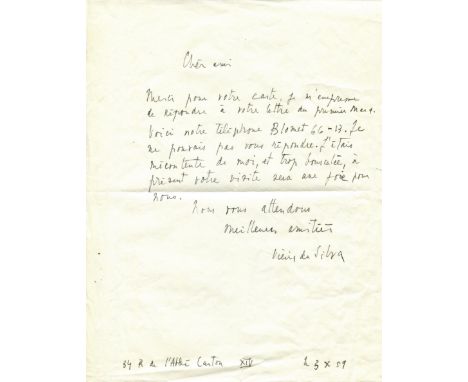 Cher ami
Merci pour votre carte. Je m'empresse
de répondre à votre lettre du premier Mars.
Voici notre téléphone Blomet 66-13. Je
ne pouvais pas vous répondre. J'étais
mécontente de moi, et trop bousculée, à
présent votre visite sera une joie pour
nous.
Nous vous attendons
meilleures amitiés
Vieira da Silva
34 R de l'Abbé Carton XIV
le 3 X 59